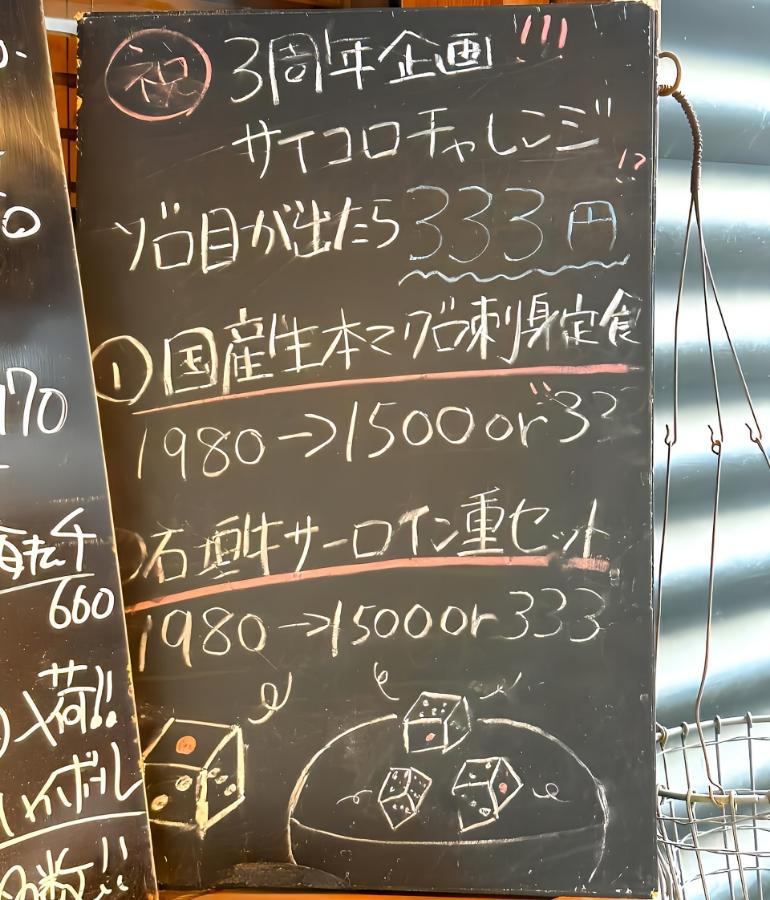 祝 3周年企画!!!
サイコロチャレンジ!?
ゾロ目が出たら333円
①国産生本マグロ刺身定食
1980→1500or33
石垣牛サーロイン重セット
1980→1500or333
170
660
入荷!!